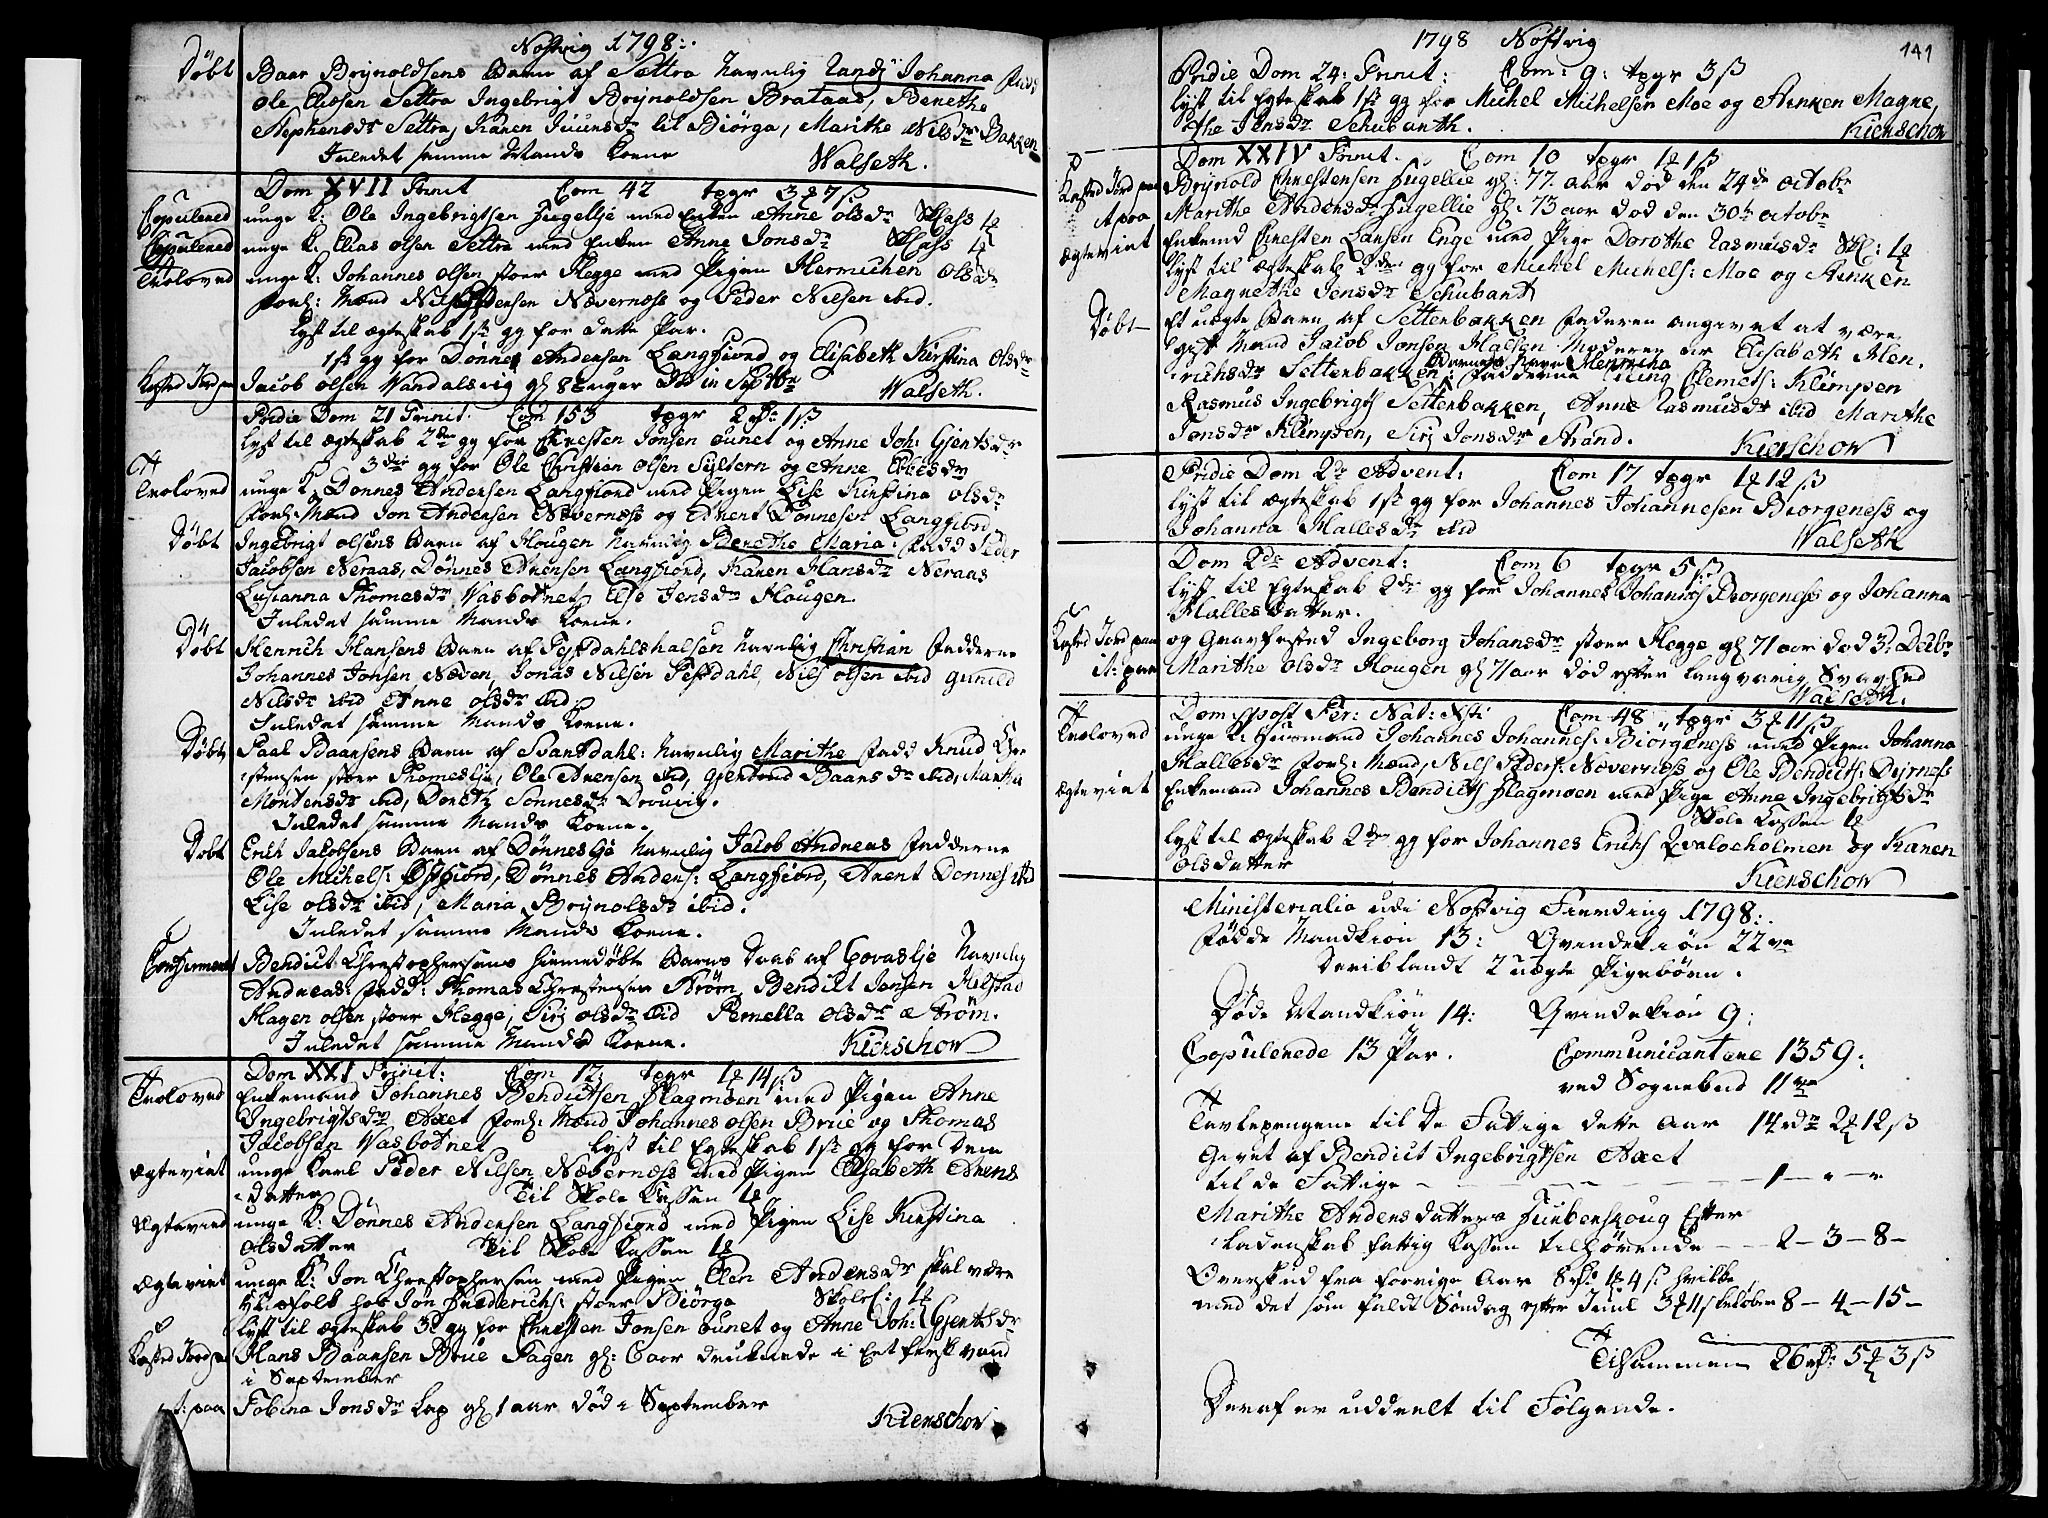 Nostvig 1798:.
Døbt Baar Brynoldsens Barn af Settra navnlig Randj Johanna Fadd
Ole Eliesen Settra Ingebrigt Brynoldsen Brataas, Berethe
Stephensdr Settra, Karen Juunsdr lil Biörga, Marithe Nilsdr Bakken
Inledet samme Mands Kone Walseth.
Dom XVII Trinit Com 42 tpgr
Copulered unge K: Ole Ingebrigtsen Hugellje med Enken Anne olsdr
Copulered unge K: Elias olsen Settra med Enken Anne Jonsdr
Troloved unge K: Johannes olsen stoer Hegge med Pigen Hermichen olsdr
Forl: Mænd Nils Pedersen Næverness og Peder Nilsen ibid.
lyst til ægteskab 1ste gg for dette Par.
1ste gg for Dønnes Andersen Langfiord og Elisabeth Kirstina olsdr
Kasted Jord paa Jacob olsen Vandalsvig gl 8 uger Død in Septbr Walseth.
Pridie Dom 21 Trinit: Com 153 tpgr
lyst til ægteskab 2den gg for Christen Jonsen ounet og Anne Joh: Gjertsdr
3die gg for Ole Christian olsen Syltern og Anne
Troloved unge K: Donnes Andersen Langfiord med Pigen Lise Kirstina olsdr
Forl: Mænd Jon Andersen Næverness og Arent Dönnesen Langfiord
Døbt Ingebrigt olsens Barn af Hougen navnlig Berethe Maria. Fadd Peder
Jacobsen Neraas, Dønnes Arensen Langfiord, Karen Hansdr Neraas
Lusianna Thomesdr Vasbotnet, Else Jensdr Hougen.
Inledet samme Mands Kone.
Døbt Henrich Hansens Barn af Fesdahlshalsen navnlig Christian Fadderne
Johannes Jonsen Næven, Jonas Nilsen Fesdahl, Nils olsen ibid Gunild
Nilsdr ibid Anne olsdr ibid.
Inledet samme Mands Kone.
Døbt Paal Baarsens Barn af Svartdahl: navnlig Marithe Fadd Knud Chre
istensen stoer Thomeslje, Ole Arensen ibid, Gjertrud Baarsdr ibid, Martha
Mortensdr ibid, Doreth Tonnesdr
Inledet samme Mands Kone.
Døbt Erich Jacobsens Barn af Dönneslje navnlig Jacob Andreas Fadderne
Ole Michels: Östfiord, Dønnes Anders: Langfiord, Arent Dønnes ibid
Lise olsdr ibid, Maria Brynolsdr ibid.
Inledet samme Mands Kone.
Confirmeret Bendict Christophersens hiemedøbte Barns Daab af Govaslje navnlig
Andreas: Fadd: Thomas Christensen Ström, Bendict Jonsen Hilstad
Hagen olsen stoer Hegge, Siri olsdr ibid Pernella olsdr Ström.
Inledet samme Mands Kone. Kierschow
Dom XXI Trinit: Com 12: tpgr
Troloved Enkemand Johannes Bendictsen Hagmoen med Pigen Anne
Ingebrigtsdr Axet Forl: Mænd Johannes olsen Brue og Thomas
Jacobsen Vasbotnet lyst til Egteskab 1ste gg for dem
Ægteviet unge Karl Peder Nilsen Næverness med Pigen Elisabeth Arens
datter Til Skole Cassen
Ægteviet unge K: Dönnes Andersen Langfiord med Pigen Lise Kirstina
olsdatter Til Skole Cassen
Ægteviet unge K: Jon Christophersen med Pigen Elen Andersdr skal være
hos Jon Friderichs: stoer Biörga
lyst til ægteskab 3die gg for Christen Jonsen ounet og Anne Joh: Gjertsdr
Kasted Jord paa Hans Baarsen Brue Hagen gl: 6 aar druknede i Et fersk vand
i September
it: paa Tobina Jonsdr Lap gl 1 aar død i September
Kierschow
1798 Nostvig 141
Pridie Dom 24: Trinit: Com: 9: tpgr 3ß
lyst til Egteskab 1ste gg for Michel Michelsen Moe og Anken Magre,
the Jensdr Schubarth. Kierschow
Dom XXIV Trinit. Com 10 tpgr
Kasted Jord paa Brynold Christensen Hugellie gl: 77 aar død den 24de octobr
it paa Marithe Andersdr Hugellie gl: 73 aar død den 30te octobr
Ægteviet Enkemd Christen Larsen Enge med Pige Dorothe Rasmusdr
lyst til ægteskab 2den gg for Michel Michels: Moe og Anken
Magrethe Jensdr Schubart
Døbt Et uægte Barn af Setterbakken Faderen angivet at være
gift Mand Jacob Jonsen Halsen. Moderen er Elisabeth Hen,
richsdr Setterbakken: Barnets Navn Henricha Fadderne Elling Clemets: Klimpen
Rasmus Ingebrigts Setterbakken, Anne Rasmusdr ibid Marithe
Jonsdr Klimpen, Siri Jonsdr Strand. Kierschow
Pridie Dom 2de Advent: Com 17 tpgr
lyst til ægteskab 1ste gg for Johannes Johannesen Biorgeness og
Johanna Hallesdr ibid Walseth
Dom 2de Advent: Com 6 tpgr 5ß
lyst til Egteskab 2den gg for Johannes Johannes Biorgeness og Johanna
Hallesdatter.
Kasted Jord paa og Gravfested Ingeborg Johansdr stoer Hegge gl 71 aar død 3de Decbr
it: paa Marithe olsdr Hougen gl 71 aar død efter langvarig Svaghed
Walseth.
Dom: post Fer: Nat: Xsti Com 48, tpgr
Troloved unge K: Huusmand Johannes Johannes: Biörgeness med Pigen Johanna
Hallesdr Forl: Mænd, Nils Peders: Næverness og Ole Bendicts: Dyrnes
Ægteviet Enkemand Johannes Bendicts Hagmoen med Pige Anne Ingebrigtsdr
Skole Cassen
lyst til ægteskab 2den gg for Johannes Erichs Qvaloeholmen og Karen
olsdatter
Kierschow
Ministerialia udi Nostvig Fierding 1798:.
Fødde Mandkiön 13: Qvindekiön 22ve
Deriblandt 2 uægte Pigebörn.
Døde Mandkiön 14: Qvindekiön 9:
Copulerede 13 Par. Communicantere 1359:
ved Sognebud 11ve
Tavlepengene til De Fattige dette Aar 14rdr 2 12ß
Givet af Bendict Ingebrigtsen Axet
til de Fattige 1
Marithe Andersdatters Efter
ladenskab fattig Cassen tilhørende 2-3-8-
Overskud fra forrige Aar
med det som faldt Søndag efter Juul 8-4-15-
Tilsammen 26 5 3ß
Deraf er uddeelt til Følgende.